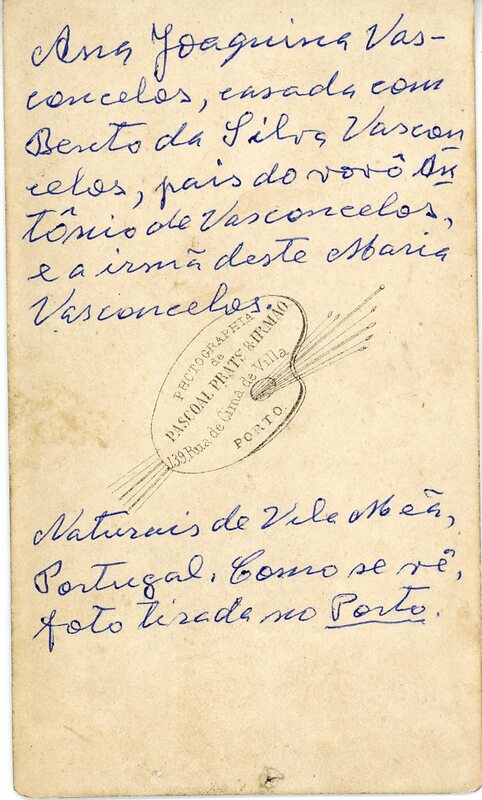 Ana Joaquina Vas-
concelos, casada com
Bento da Silva Vascon
celos, pais do vovô An
tônio de Vasconcelos,
e a irmã deste Maria
Vasconcelos.
PHOTOGRAPHIA
de
PASCOAL PRATS & IRMÃO
139, Rua de Cima de Villa
PORTO
Naturais de Vila Meã,
Portugal. Como se vê,
foto tirada no Porto.